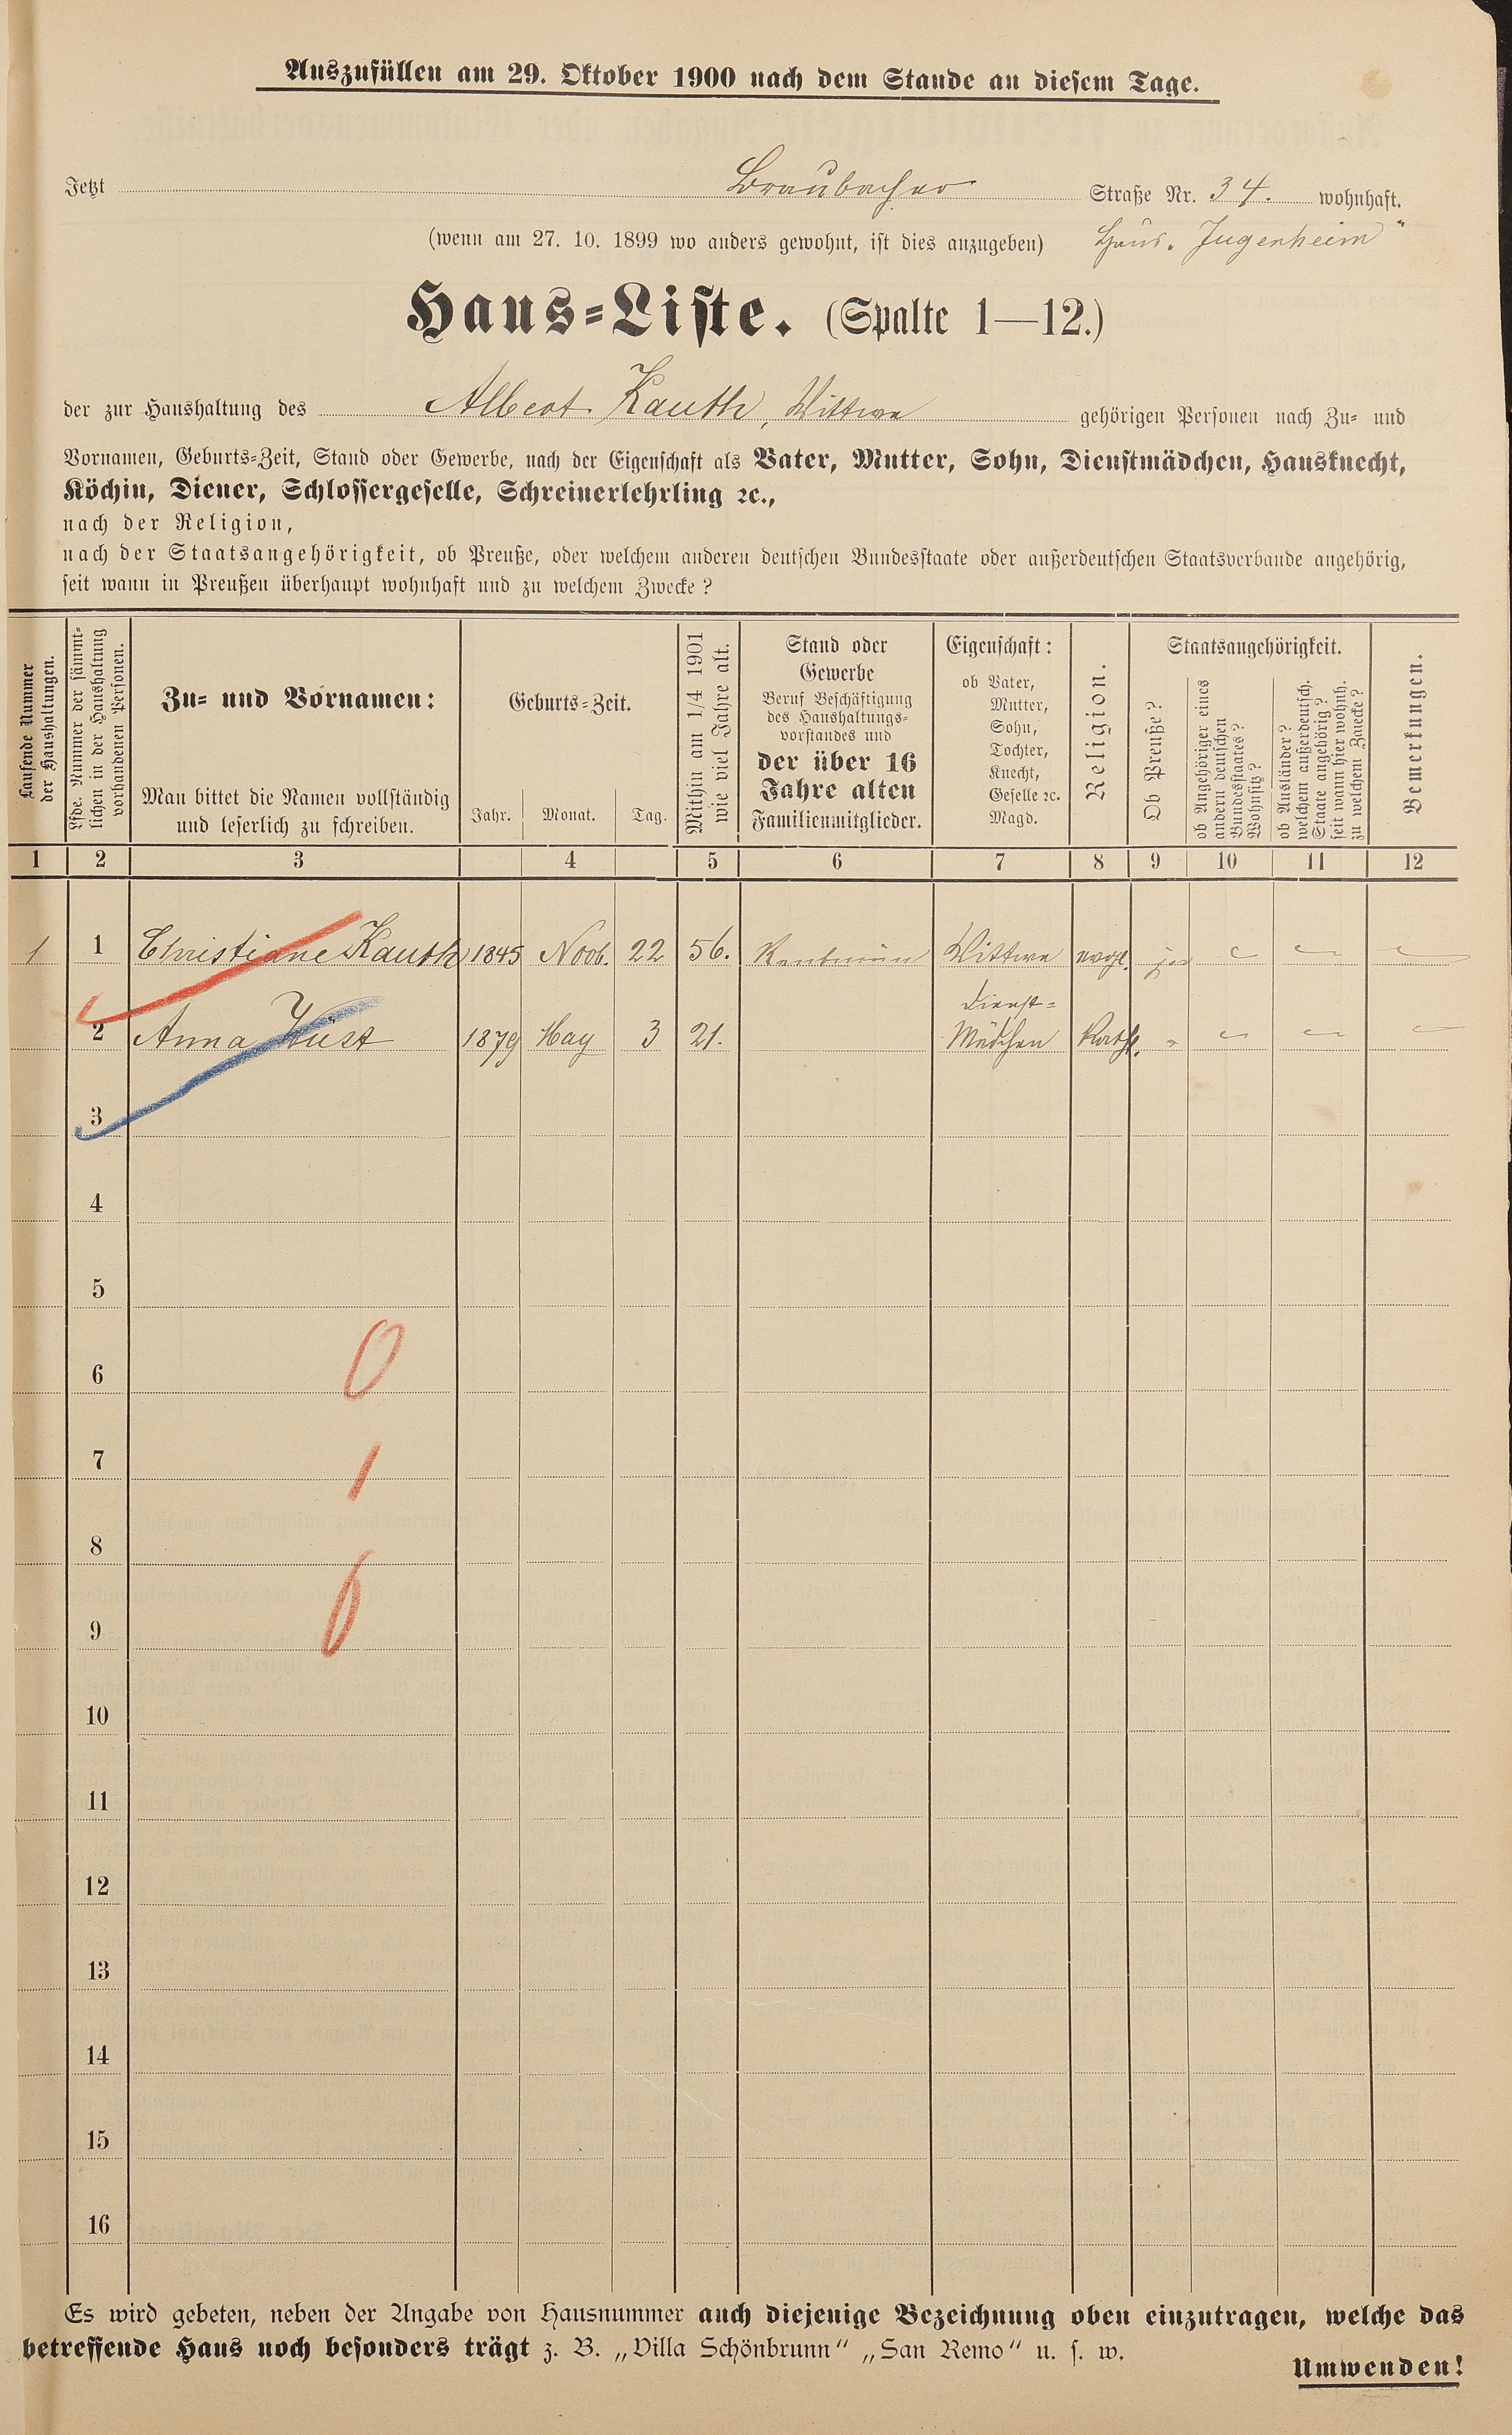 Auszufüllen am 29. Oktober 1900 nach dem Stande an diesem Tage.
Jetzt Braubacher Straße Nr. 34. wohnhaft.
(wenn am 27. 10. 1899 wo anders gewohnt, ist dies anzugeben) Haus „Jugenheim"
Haus-Liste. (Spalte 1—12.)
der zur Haushaltung des Albert Kauth, Wittwe gehörigen Personen nach Zu- und
Vornamen, Geburts-Zeit, Stand oder Gewerbe, nach der Eigenschaft als Vater, Mutter, Sohn, Dienstmädchen, Hausknecht,
Köchin, Diener, Schlossergeselle, Schreinerlehrling ꝛc.,
nach der Religion,
nach der Staatsangehörigkeit, ob Preuße, oder welchem anderen deutschen Bundesstaate oder außerdeutschen Staatsverbande angehörig,
seit wann in Preußen überhaupt wohnhaft und zu welchem Zwecke?
Laufende Nummer
der Haushaltungen.
Lfde. Nummer der sämmt-
lichen in der Haushaltung
vorhandenen Personen.
Zu- und Vornamen:
Man bittet die Namen vollständig
und leserlich zu schreiben.
Geburts-Zeit.
Jahr. Monat. Tag.
Mithin am 1/4 1901
wie viel Jahre alt.
Stand oder
Gewerbe
Beruf Beschäftigung
des Haushaltungs-
vorstandes und
der über 16
Jahre alten
Familienmitglieder.
Eigenschaft:
ob Vater,
Mutter,
Sohn,
Tochter,
Knecht,
Geselle ꝛc.
Magd.
Religion.
Staatsangehörigkeit.
Ob Preuße?
ob Angehöriger eines
andern deutschen
Bundesstaates?
Wohnsitz?
ob Ausländer?
welchem außerdeutsch.
Staate angehörig?
seit wann hier wohnh.
zu welchem Zwecke?
Bemerkungen.
1 2 3 4 5 6 7 8 9 10 11 12
1 1 Christiane Kauth 1845 Novb. 22 56. Rentnerin Wittwe evgl. ja
2 Anna Wüst 1879 May 3 21. Dienst=
Mädchen Kath. "
3
4
5
6
0
7
1
8
9
0
10
11
12
13
14
15
16
Es wird gebeten, neben der Angabe von Hausnummer auch diejenige Bezeichnung oben einzutragen, welche das
betreffende Haus noch besonders trägt z. B. „Villa Schönbrunn" „San Remo" u. s. w.
Umwenden!